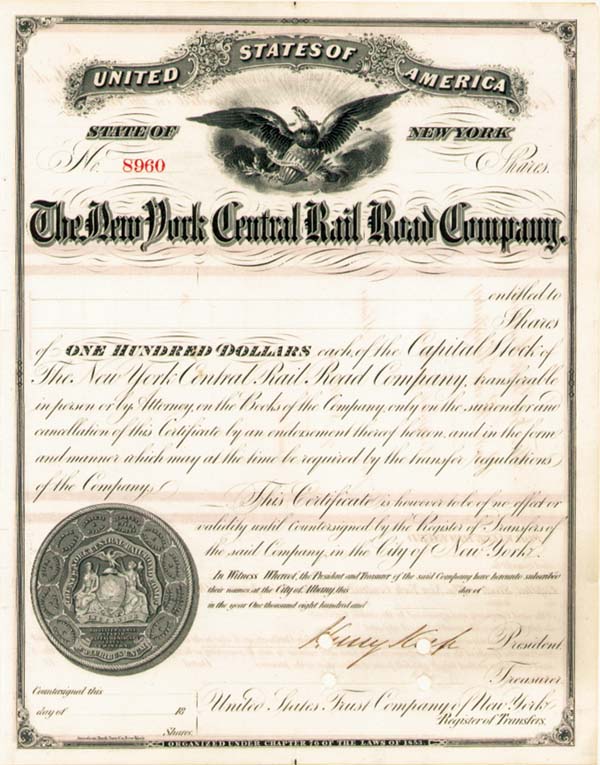 UNITED STATES OF AMERICA
STATE OF NEW YORK
No. 8960 Shares.
The New York Central Rail Road Company.
entitled to
Shares
of ONE HUNDRED DOLLARS each, of the Capital Stock of
The New York Central Rail Road Company, transferable
in person or by Attorney, on the Books of the Company, only on the surrender and
cancellation of this Certificate by an endorsement thereof hereon, and in the form
and manner which may at the time be required by the transfer regulations
of the Company.
This Certificate is however to be of no effect or
validity until Countersigned by the Register of Transfers of
the said Company, in the City of New York.
In Witness Whereof, the President and Treasurer of the said Company have hereunto subscribed
their names at the City of Albany this day of
in the year One thousand eight hundred and
Henry Keep President
Treasurer
Countersigned this
day of 18
Shares.
United States Trust Company of New York
Register of Transfers.
American Bank Note Co. New York
ORGANIZED UNDER CHAPTER 76 OF THE LAWS OF 1853.